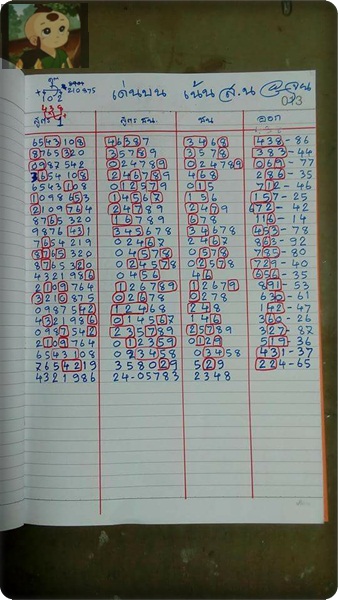 เด่นบน เน้น ส.น
013
210875
102
สูตร 1 สูตร ชน. ชน ออก
6543108 46387 3468 438-86
8765320 35789 3578 383-44
0987542 024789 024789 069-77
3654108 246789 468 286-35
6543108 012579 015 712-46
1098653 14567 156 157-25
2109764 24789 2479 672-42
8765320 16789 678 116-14
9876431 345678 34678 453-78
7654219 02467 2467 863-92
8765320 04578 0578 785-80
8765320 024578 02578 729-40
4321986 0456 46 656-35
2109764 126789 12679 891-53
3210875 02678 0278 630-61
0987542 12468 248 142-47
4321986 014567 146 360-26
0987542 235789 25789 327-87
2109764 012359 0129 519-36
6543108 023458 03458 431-37
7654219 358029 529 224-65
4321986 24-05783 2348